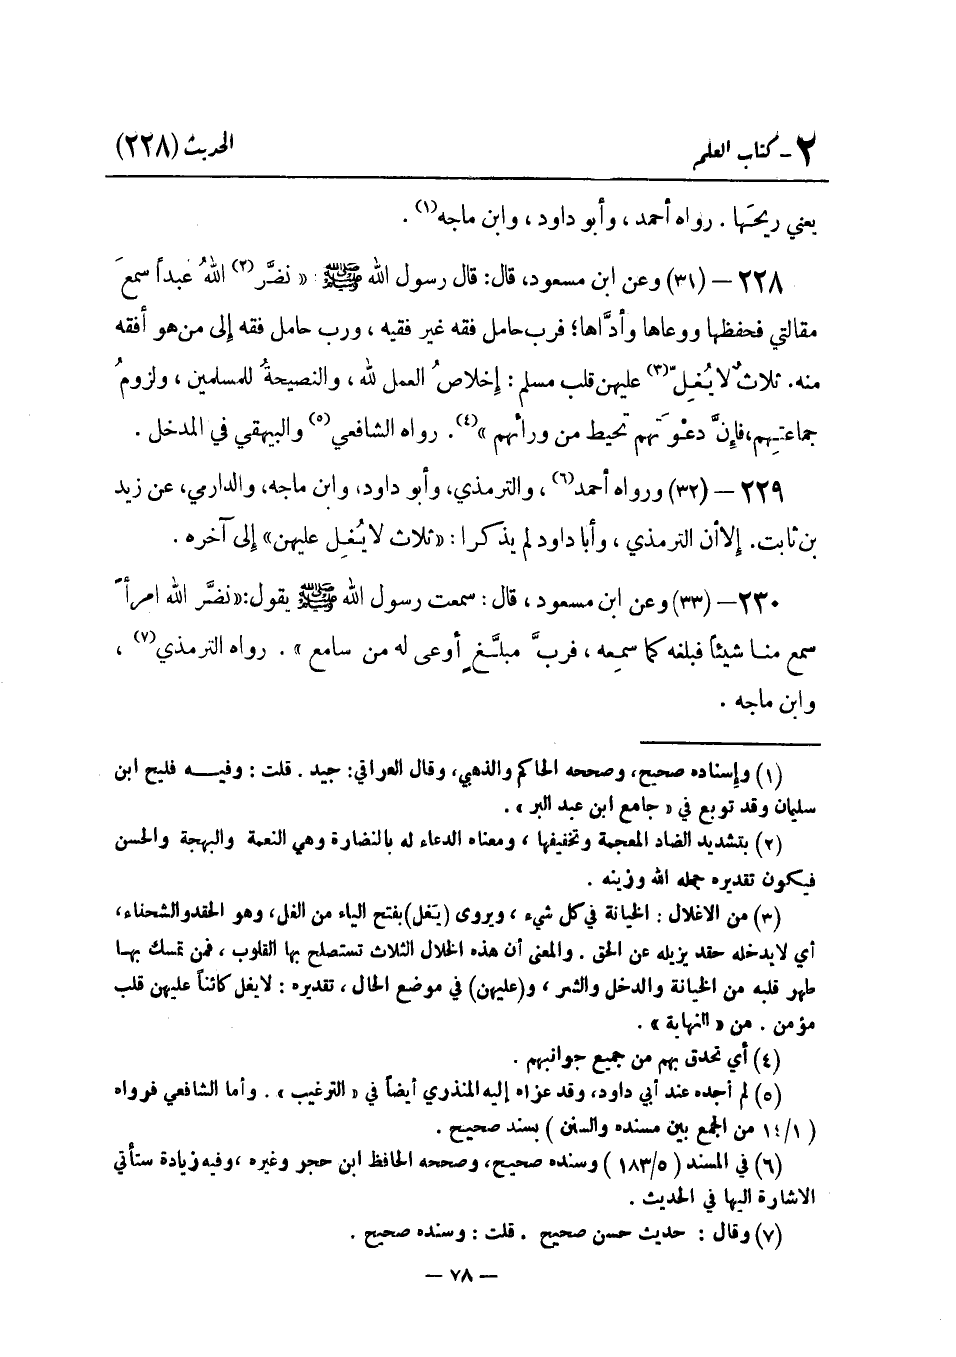 ٢ - كتاب العلم
الحديث (٢٢٨)
يعني ريحَها . رواه أحمد ، وأبو داود ، وابن ماجه(١) .
٢٢٨ – (٣١) وعن ابن مسعود، قال: قال رسول الله ﷺ : « نضَّر(٢) اللهُ عبداً سمعَ
مقالتي فحفظها ووعاها وأدَّاها؛ فرب حامل فقه غير فقيه ، ورب حامل فقه إلى من هو أفقه
منه. ثلاثٌ لا يُغِلّ(٣) عليهن قلب مسلم : إخلاصُ العمل لله ، والنصيحةُ للمسلمين ، ولزومُ
جماعتِهم،فإنَّ دعْوتَهم تحيط من ورائهم »(٤). رواه الشافعي(٥) والبيهقي في المدخل .
٢٢٩ – (٣٢) ورواه أحمد(٦) ، والترمذي، وأبو داود، وابن ماجه، والدارمي، عن زيد
بن ثابت. إلا أن الترمذي ، وأبا داود لم يذكرا : «ثلاث لا يُغِل عليهن» إلى آخره .
٢٣٠– (٣٣) وعن ابن مسعود ، قال : سمعت رسول الله ﷺ يقول:«نضَّر الله امرأً
سمع منا شيئاً فبلغه كما سمِعه ، فربَّ مبلَّغٍ أوعى له من سامع » . رواه الترمذي(٧) ،
وابن ماجه .
(١) وإسناده صحيح، وصححه الحاكم والذهبي، وقال العراقي: جيد . قلت : وفيه فليح ابن
سليمان وقد توبع في « جامع ابن عبد البر » .
(٢) بتشديد الضاد المعجمة وتخفيفها ، ومعناه الدعاء له بالنضارة وهي النعمة والبهجة والحسن
فيكون تقديره جمله الله وزينه .
(٣) من الاغلال : الخيانة في كل شيء ، ويروى (يَغل) بفتح الياء من الغل، وهو الحقد والشحناء،
أي لا يدخله حقد يزيله عن الحق . والمعنى أن هذه الخلال الثلاث تستصلح بها القلوب ، فمن تمسك بها
طهر قلبه من الخيانة والدخل والشر ، و(عليهن) في موضع الحال ، تقديره : لا يغل كائناً عليهن قلب
مؤمن . من « النهاية » .
(٤) أي تحدق بهم من جميع جوانبهم .
(٥) لم أجده عند أبي داود، وقد عزاه إليه المنذري أيضاً في « الترغيب » . وأما الشافعي فرواه
( ١٤/١ من الجمع بين مسنده والسنن ) بسند صحيح .
(٦) في المسند ( ١٨٣/٥ ) وسنده صحيح، وصححه الحافظ ابن حجر وغيره ،وفيه زيادة ستأتي
الاشارة اليها في الحديث .
(٧) وقال : حديث حسن صحيح . قلت : وسنده صحيح .
– ٧٨ –